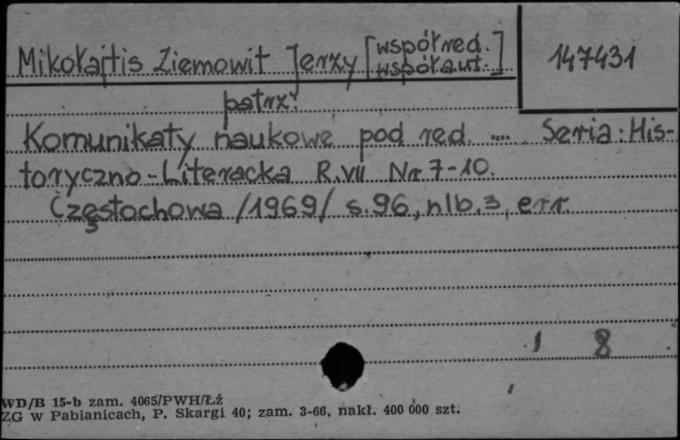 Mikołajtis Ziemowit Jerzy [współred. współaut.] 147431
patrz:
Komunikaty naukowe pod red. .... Seria: His-
toryczno-Literacka R.VII Nr 7-10.
Częstochowa /1969/ s.96, nlb.3, err.
1 8
WD/B 15-b zam. 4065/PWH/Łź
ZG w Pabianicach, P. Skargi 40; zam. 3-66, nakł. 400 000 szt.